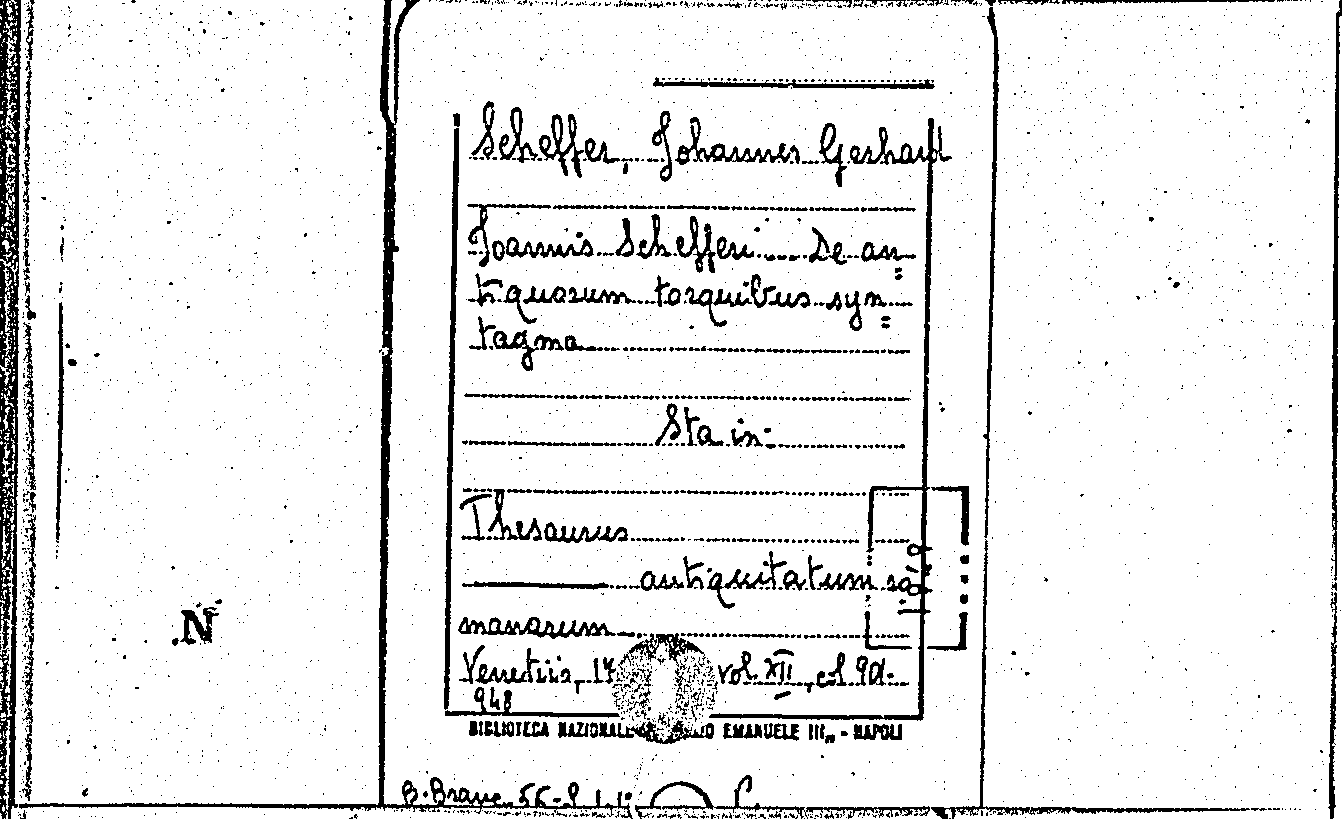 Scheffer, Johannes Gerhard
Joannis Schefferi.... De an=
tiquorum torquibus syn=
tagma
Sta in:
Thesaurus
antiquitatum ro
manarum
Venetiis, 17 vol. XII, col. 9
948
BIBLIOTECA NAZIONALE EMANUELE III„ - NAPOLI
B. Branc.
N